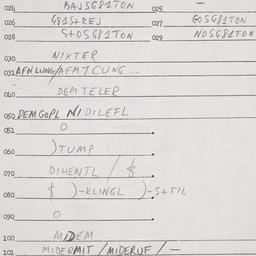 024 BAJSG81TON 025 —
026 G81S+REJ 027 GOSG81TON
028 S+OSG81TON 029 NOSG81TON
030 NIXTER
031 AFNLUNG/AFM7CUNG
040 DEMTELER
050 DEMGOPL NIDILEFL
051 O
060 )TUMP
070 DIHENTL / $
080 $ )-KLINGL )-S+TIL
090 O
100 MIDEM
101 MIDERMIT/MIDERUF/—